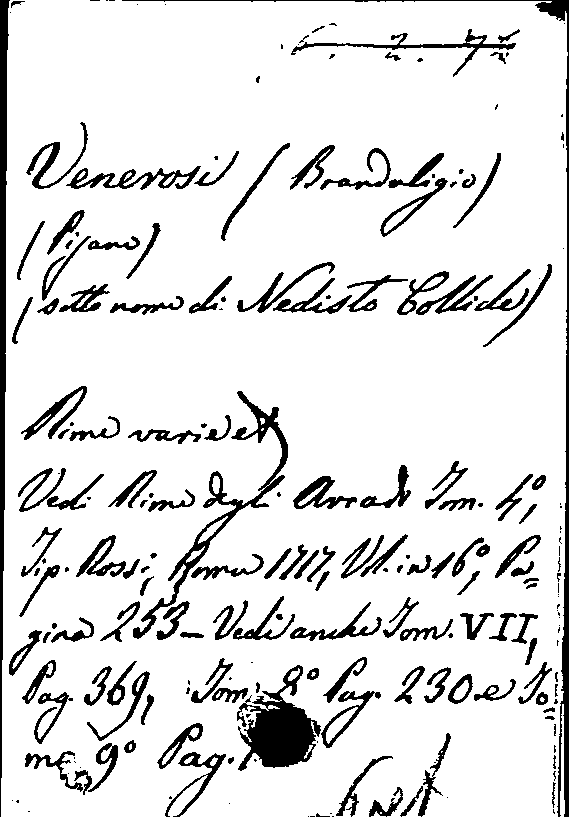 6. 2. 7
Venerosi (Branduligio)
(Pisano)
(sotto nome di Nedisto Collide)
Rime varie
Vedi Rime degli Arcadi Tom. 4º,
Tip. Rossi, Roma 1717, Vol. in 16º, Pa=
gina 253 - Vedi anche Tom. VII,
Pag. 369, Tom. 8º Pag. 230. e To=
mo 9º Pag.